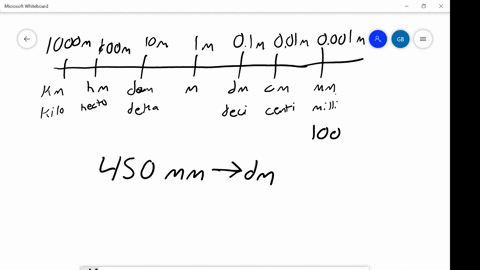 Microsoft Whiteboard
GB
1000m 100m 10m 1m 0.1m 0.01m 0.001m
Km hm dam m dm cm mm
Kilo hecto deka deci centi milli
100
450 mm → dm